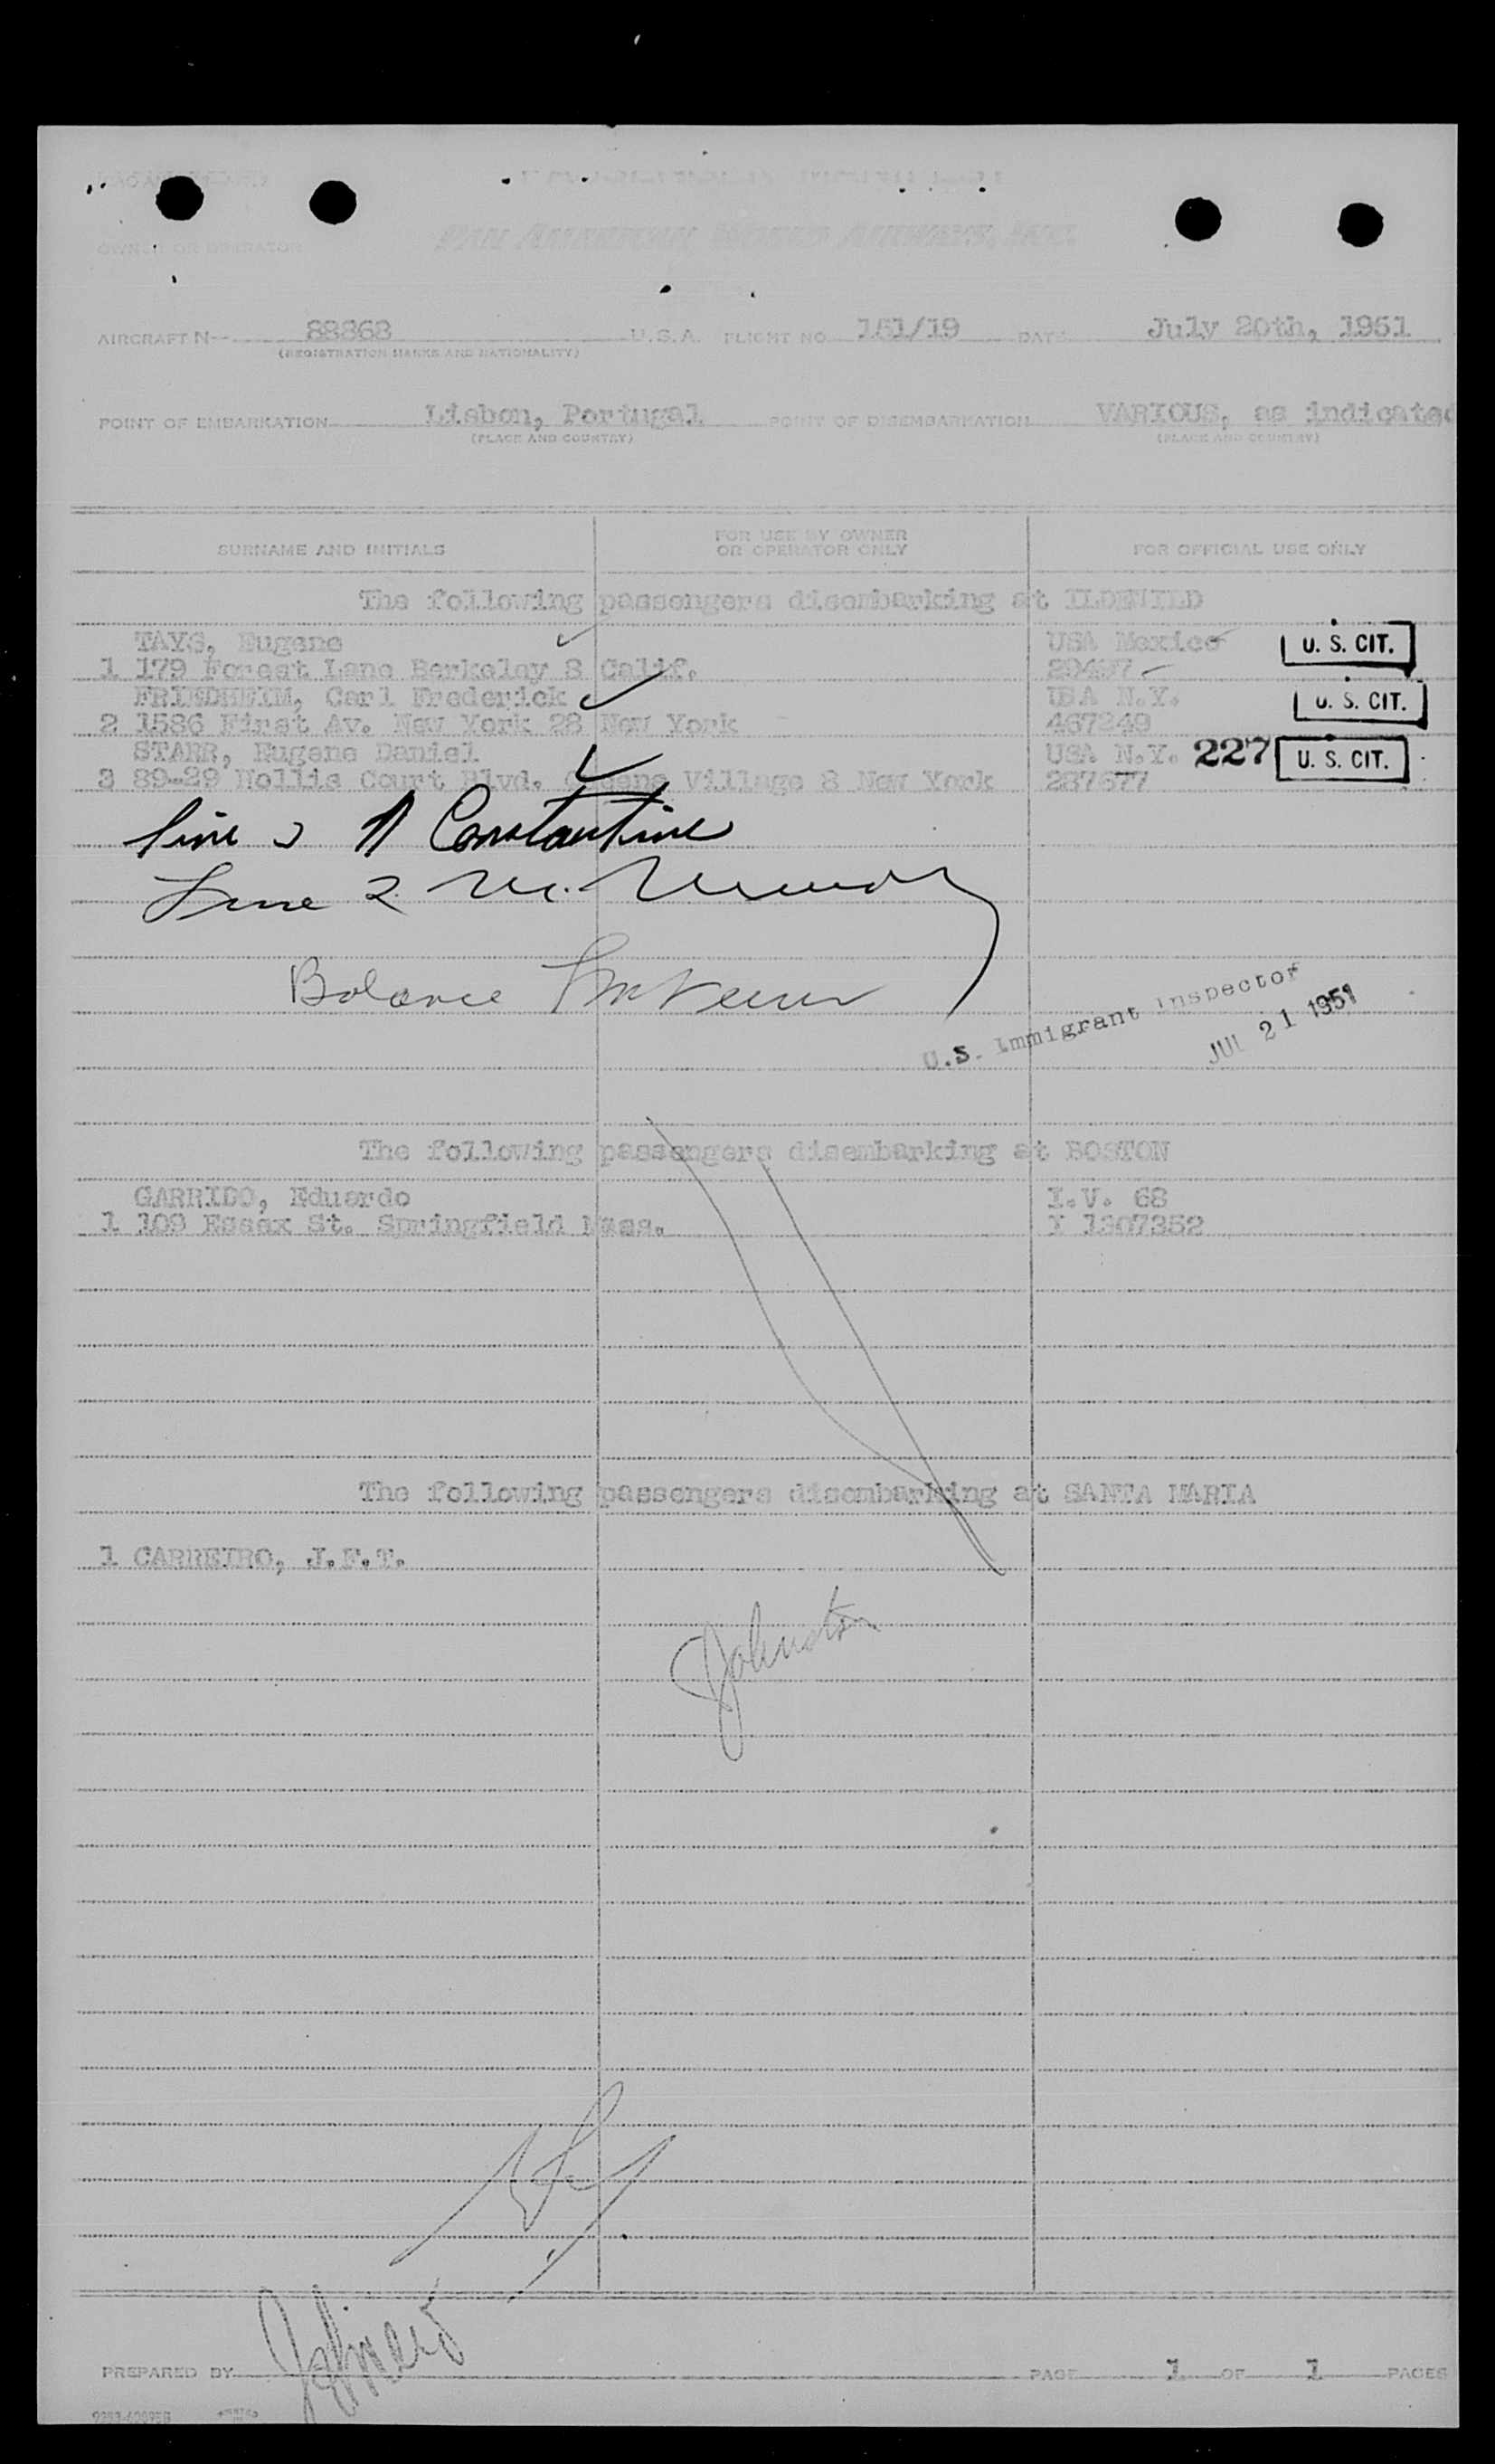 OWNER OR OPERATOR
PAN AMERICAN WORLD AIRWAYS, INC.
AIRCRAFT N-- 88868 U.S.A. FLIGHT NO. 151/19 DATE July 20th, 1951
(REGISTRATION MARKS AND NATIONALITY)
POINT OF EMBARKATION Lisbon, Portugal POINT OF DISEMBARKATION VARIOUS, as indicated
(PLACE AND COUNTRY) (PLACE AND COUNTRY)
SURNAME AND INITIALS FOR USE BY OWNER OR OPERATOR ONLY FOR OFFICIAL USE ONLY
The following passengers disembarking at
TAYS, Eugene USA Mexico U. S. CIT.
1 179 Forest Lane Berkeley 8 Calif. 29497
FRIEDHEIM, Carl Frederick USA N.Y. U. S. CIT.
2 1586 First Av. New York 28 New York 467249
STARR, Eugene Daniel USA N.Y. 227 U. S. CIT.
3 89-29 Hollis Court Blvd. Queens Village 8 New York 287677
line 3 A Constantine
Line 2
Balance
U.S. Immigrant Inspector
JUL 21 1951
The following passengers disembarking at BOSTON
GARRIDO, Eduardo I.V. 68
1 109 Essex St. Springfield Mass. I 1307352
The following passengers disembarking at SANTA MARIA
1 CARREIRO, J.F.T.
Johnston
PREPARED BY PAGE 1 OF 1 PAGES